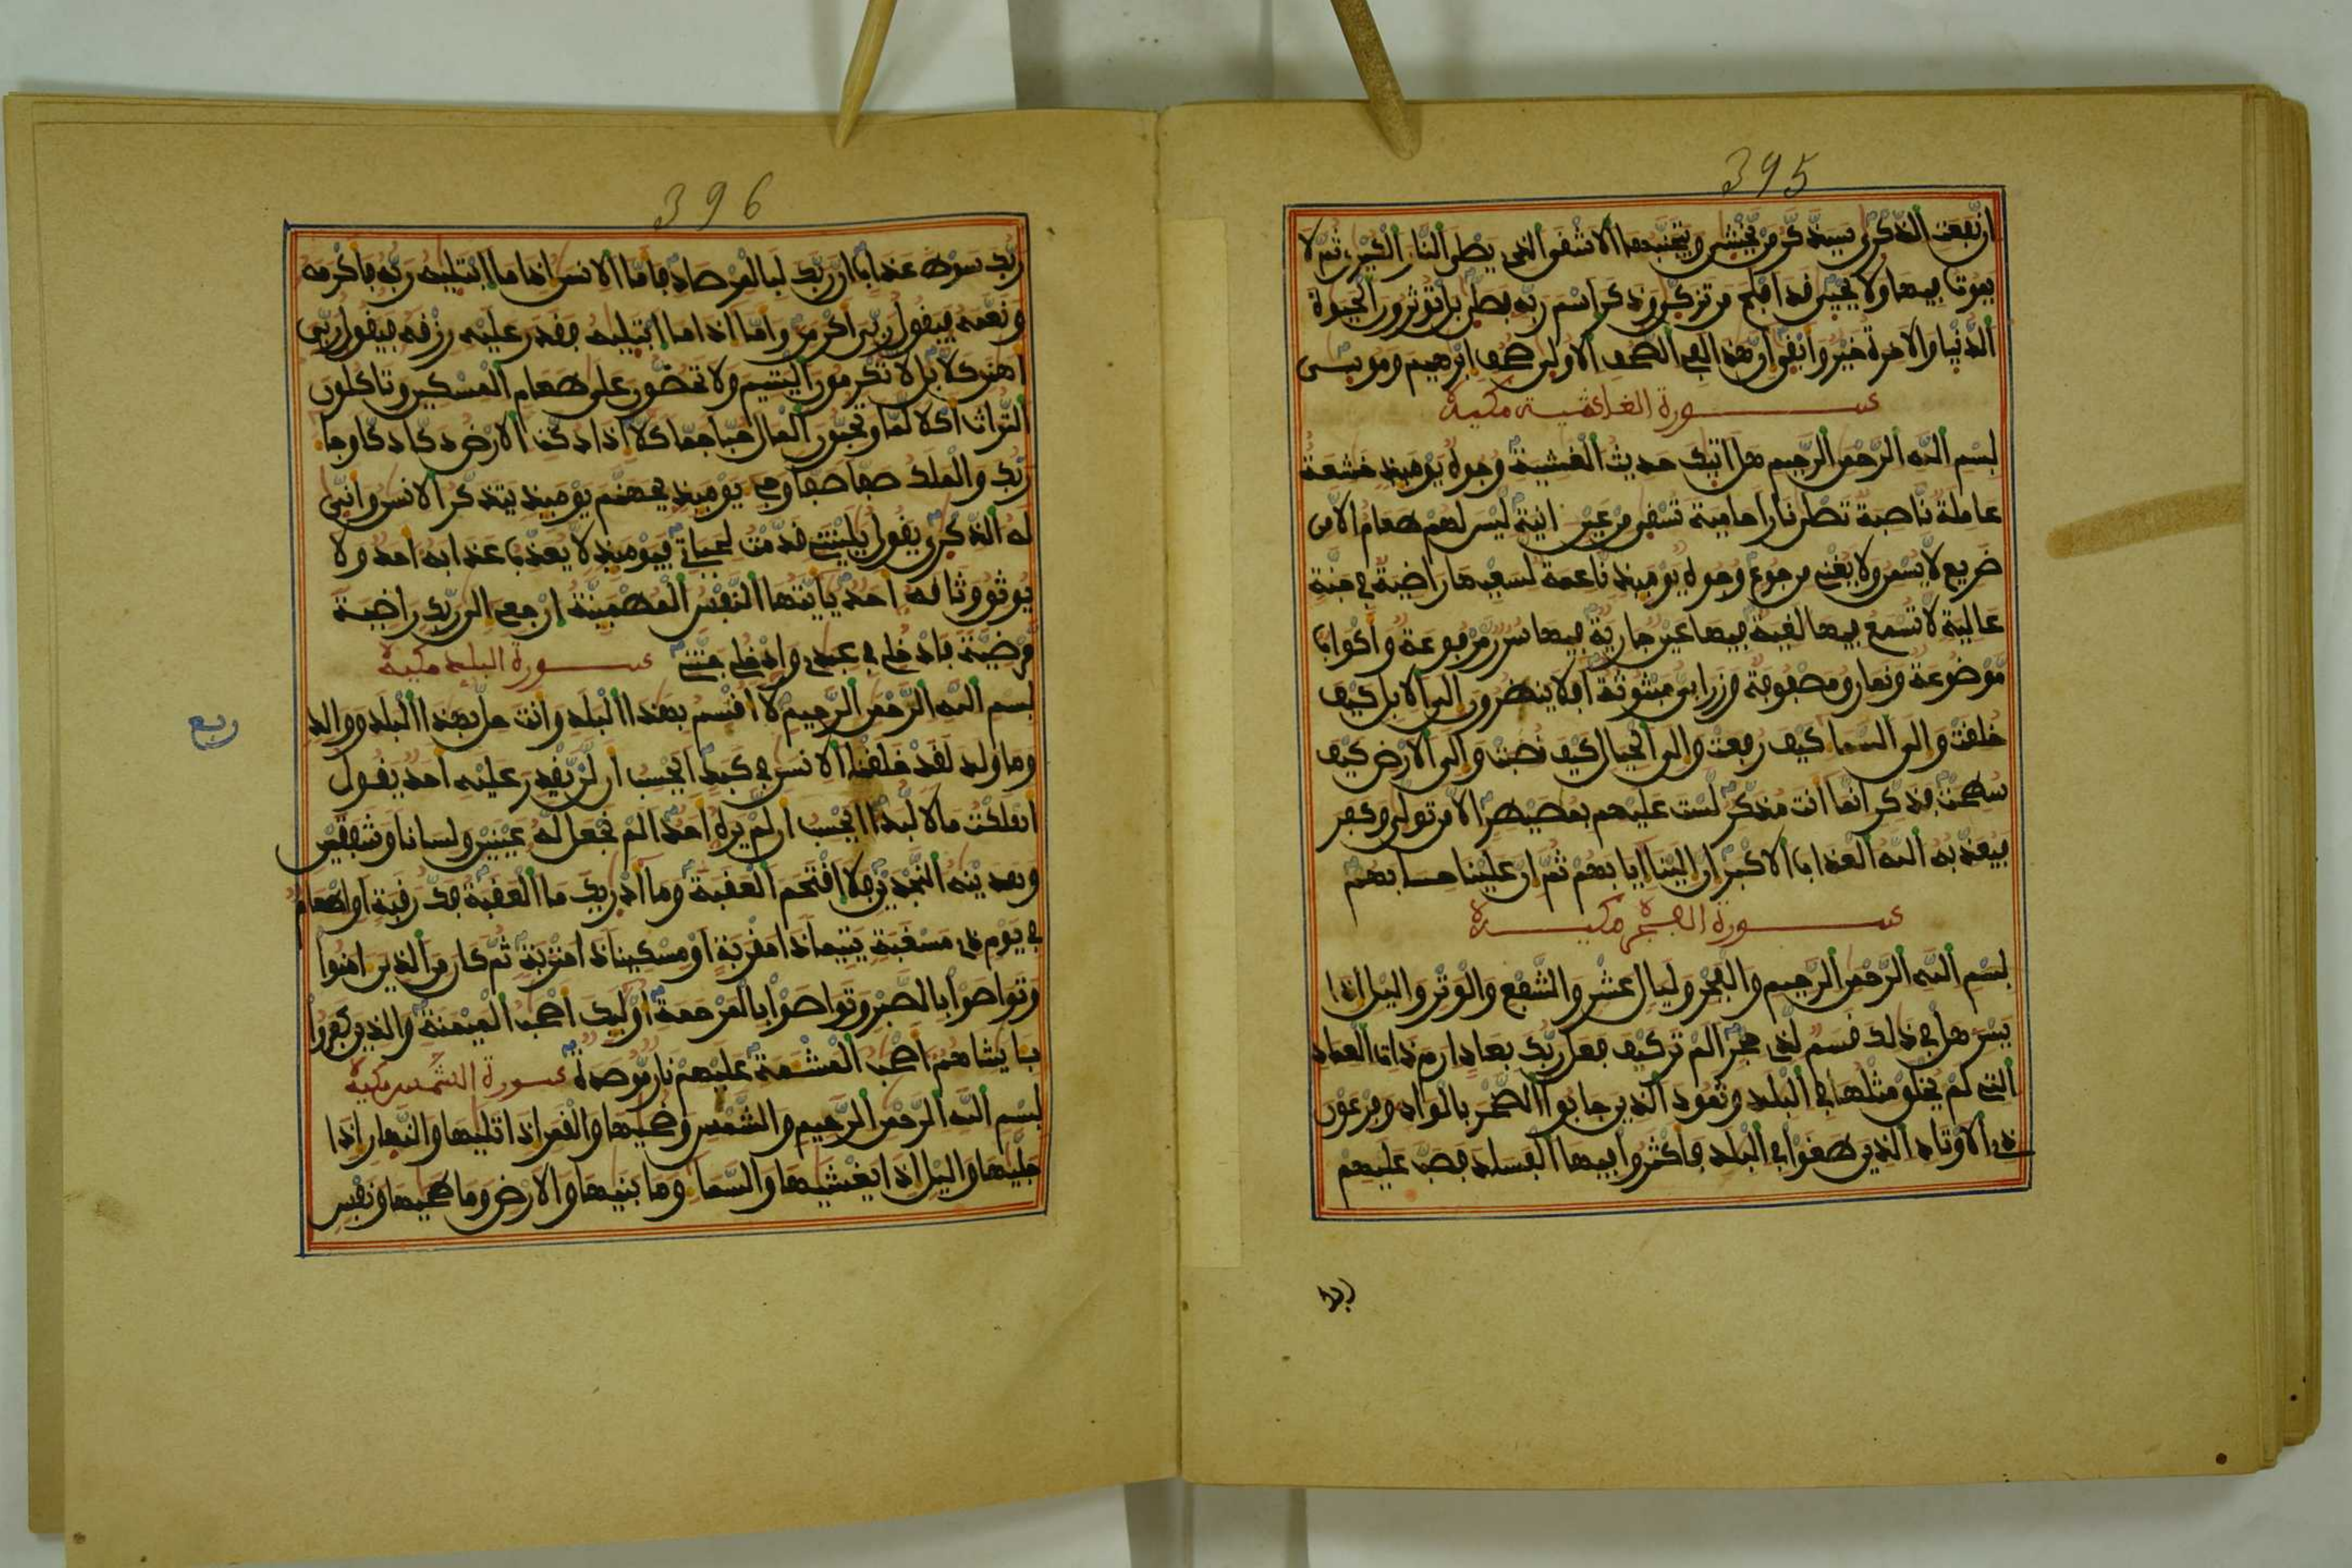 395
ان نفعت الذكرى سيذكر من يخشى ويتجنبها الاشقى الذى يصلى النار الكبرى ثم لا
يموت فيها ولا يحيى قد افلح من تزكى وذكر اسم ربه فصلى بل توثرون الحيوة
الدنيا والاخرة خير وابقى ان هذا لفى الصحف الاولى صحف ابرهيم وموسى
سورة الغاشية مكية
بسم الله الرحمن الرحيم هل اتيك حديث الغشية وجوه يوميذ خشعة
عاملة ناصبة تصلى نارا حامية تسقى من عين انية ليس لهم طعام الا من
ضريع لا يسمن ولا يغنى من جوع وجوه يوميذ ناعمة لسعيها راضية فى جنة
عالية لا تسمع فيها لغية فيها عين جارية فيها سرر مرفوعة واكواب
موضوعة ونمارق مصفوفة وزرابى مبثوثة افلا ينظرون الى الابل كيف
خلقت والى السما كيف رفعت والى الجبال كيف نصبت والى الارض كيف
سطحت فذكر انما انت مذكر لست عليهم بمصيطر الا من تولى وكفر
فيعذبه الله العذاب الاكبر ان الينا ايابهم ثم ان علينا حسابهم
سورة الفجر مكية
بسم الله الرحمن الرحيم والفجر وليال عشر والشفع والوتر واليل اذا
يسر هل فى ذلك قسم لذى حجر الم تر كيف فعل ربك بعاد ارم ذات العماد
التى لم يخلق مثلها فى البلد وثمود الذين جابوا الصخر بالواد وفرعون
ذى الاوتاد الذين طغوا فى البلد فاكثروا فيها الفساد فصب عليهم
ربك
396
ربك سوط عذاب ان ربك لبالمرصاد فاما الانسن اذا ما ابتليه ربه فاكرمه
ونعمه فيقول ربى اكرمن واما اذا ما ابتليه فقدر عليه رزقه فيقول ربى
اهنن كلا بل لا تكرمون اليتيم ولا تحضون على طعام المسكين وتاكلون
التراث اكلا لما وتحبون المال حبا جما كلا اذا دكت الارض دكا دكا وجا
ربك والملك صفا صفا وجى يوميذ بجهنم يوميذ يتذكر الانسن وانى
له الذكرى يقول يليتنى قدمت لحياتى فيوميذ لا يعذب عذابه احد ولا
يوثق وثاقه احد يايتها النفس المطمينة ارجعى الى ربك راضية
مرضية فادخلى فى عبدى وادخلى جنتى سورة البلد مكية
بسم الله الرحمن الرحيم لا اقسم بهذا البلد وانت حل بهذا البلد ووالد
وما ولد لقد خلقنا الانسن فى كبد ايحسب ان لن يقدر عليه احد يقول
اهلكت مالا لبدا ايحسب ان لم يره احد الم نجعل له عينين ولسانا وشفتين
وهدينه النجدين فلا اقتحم العقبة وما ادريك ما العقبة فك رقبة او اطعام
فى يوم ذى مسغبة يتيما ذا مقربة او مسكينا ذا متربة ثم كان من الذين امنوا
وتواصوا بالصبر وتواصوا بالمرحمة اوليك اصحب الميمنة والذين كفروا
بايتنا هم اصحب المشمة عليهم نار موصدة سورة الشمس مكية
بسم الله الرحمن الرحيم والشمس وضحيها والقمر اذا تليها والنهار اذا
جليها واليل اذا يغشيها والسما وما بنيها والارض وما طحيها ونفس
ربع